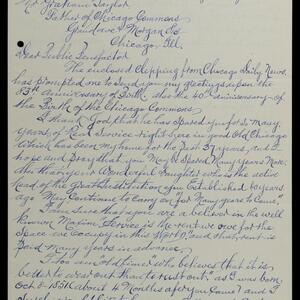 Mr Graham Taylor
Father of Chicago Commons
Grand ave & Morgan St
Chicago, Ill.
Dear Public Benefactor
The enclosed Clipping from Chicago Daily News,
has prompted me to send you my greetings upon the
83rd anniversary of Birth, also the 40th anniversary of
the Birth of the Chicago Commons
I thank God, that he has spared you for so many
years, of Real Service right here in good Old Chicago
Which has been my home for the Past 57 years, and I
hope and Pray that you May be spared Many Years More.
Also that your Wonderful Daughter who is the active
Head of the Great Institution you Established 40 years
ago May Continue to carry on "for Many years to Come",
I am Sure that you are a believer in the well
known Maxim Service is the rent we owe for the
space we occupy in this World, and that rent is
Paid Many years in advance.
I too am Old fashioned, who believes that it is
better to wear out than to rust out, as I was born
Oct 2 - 1851 about 4 Months after you Came, and I